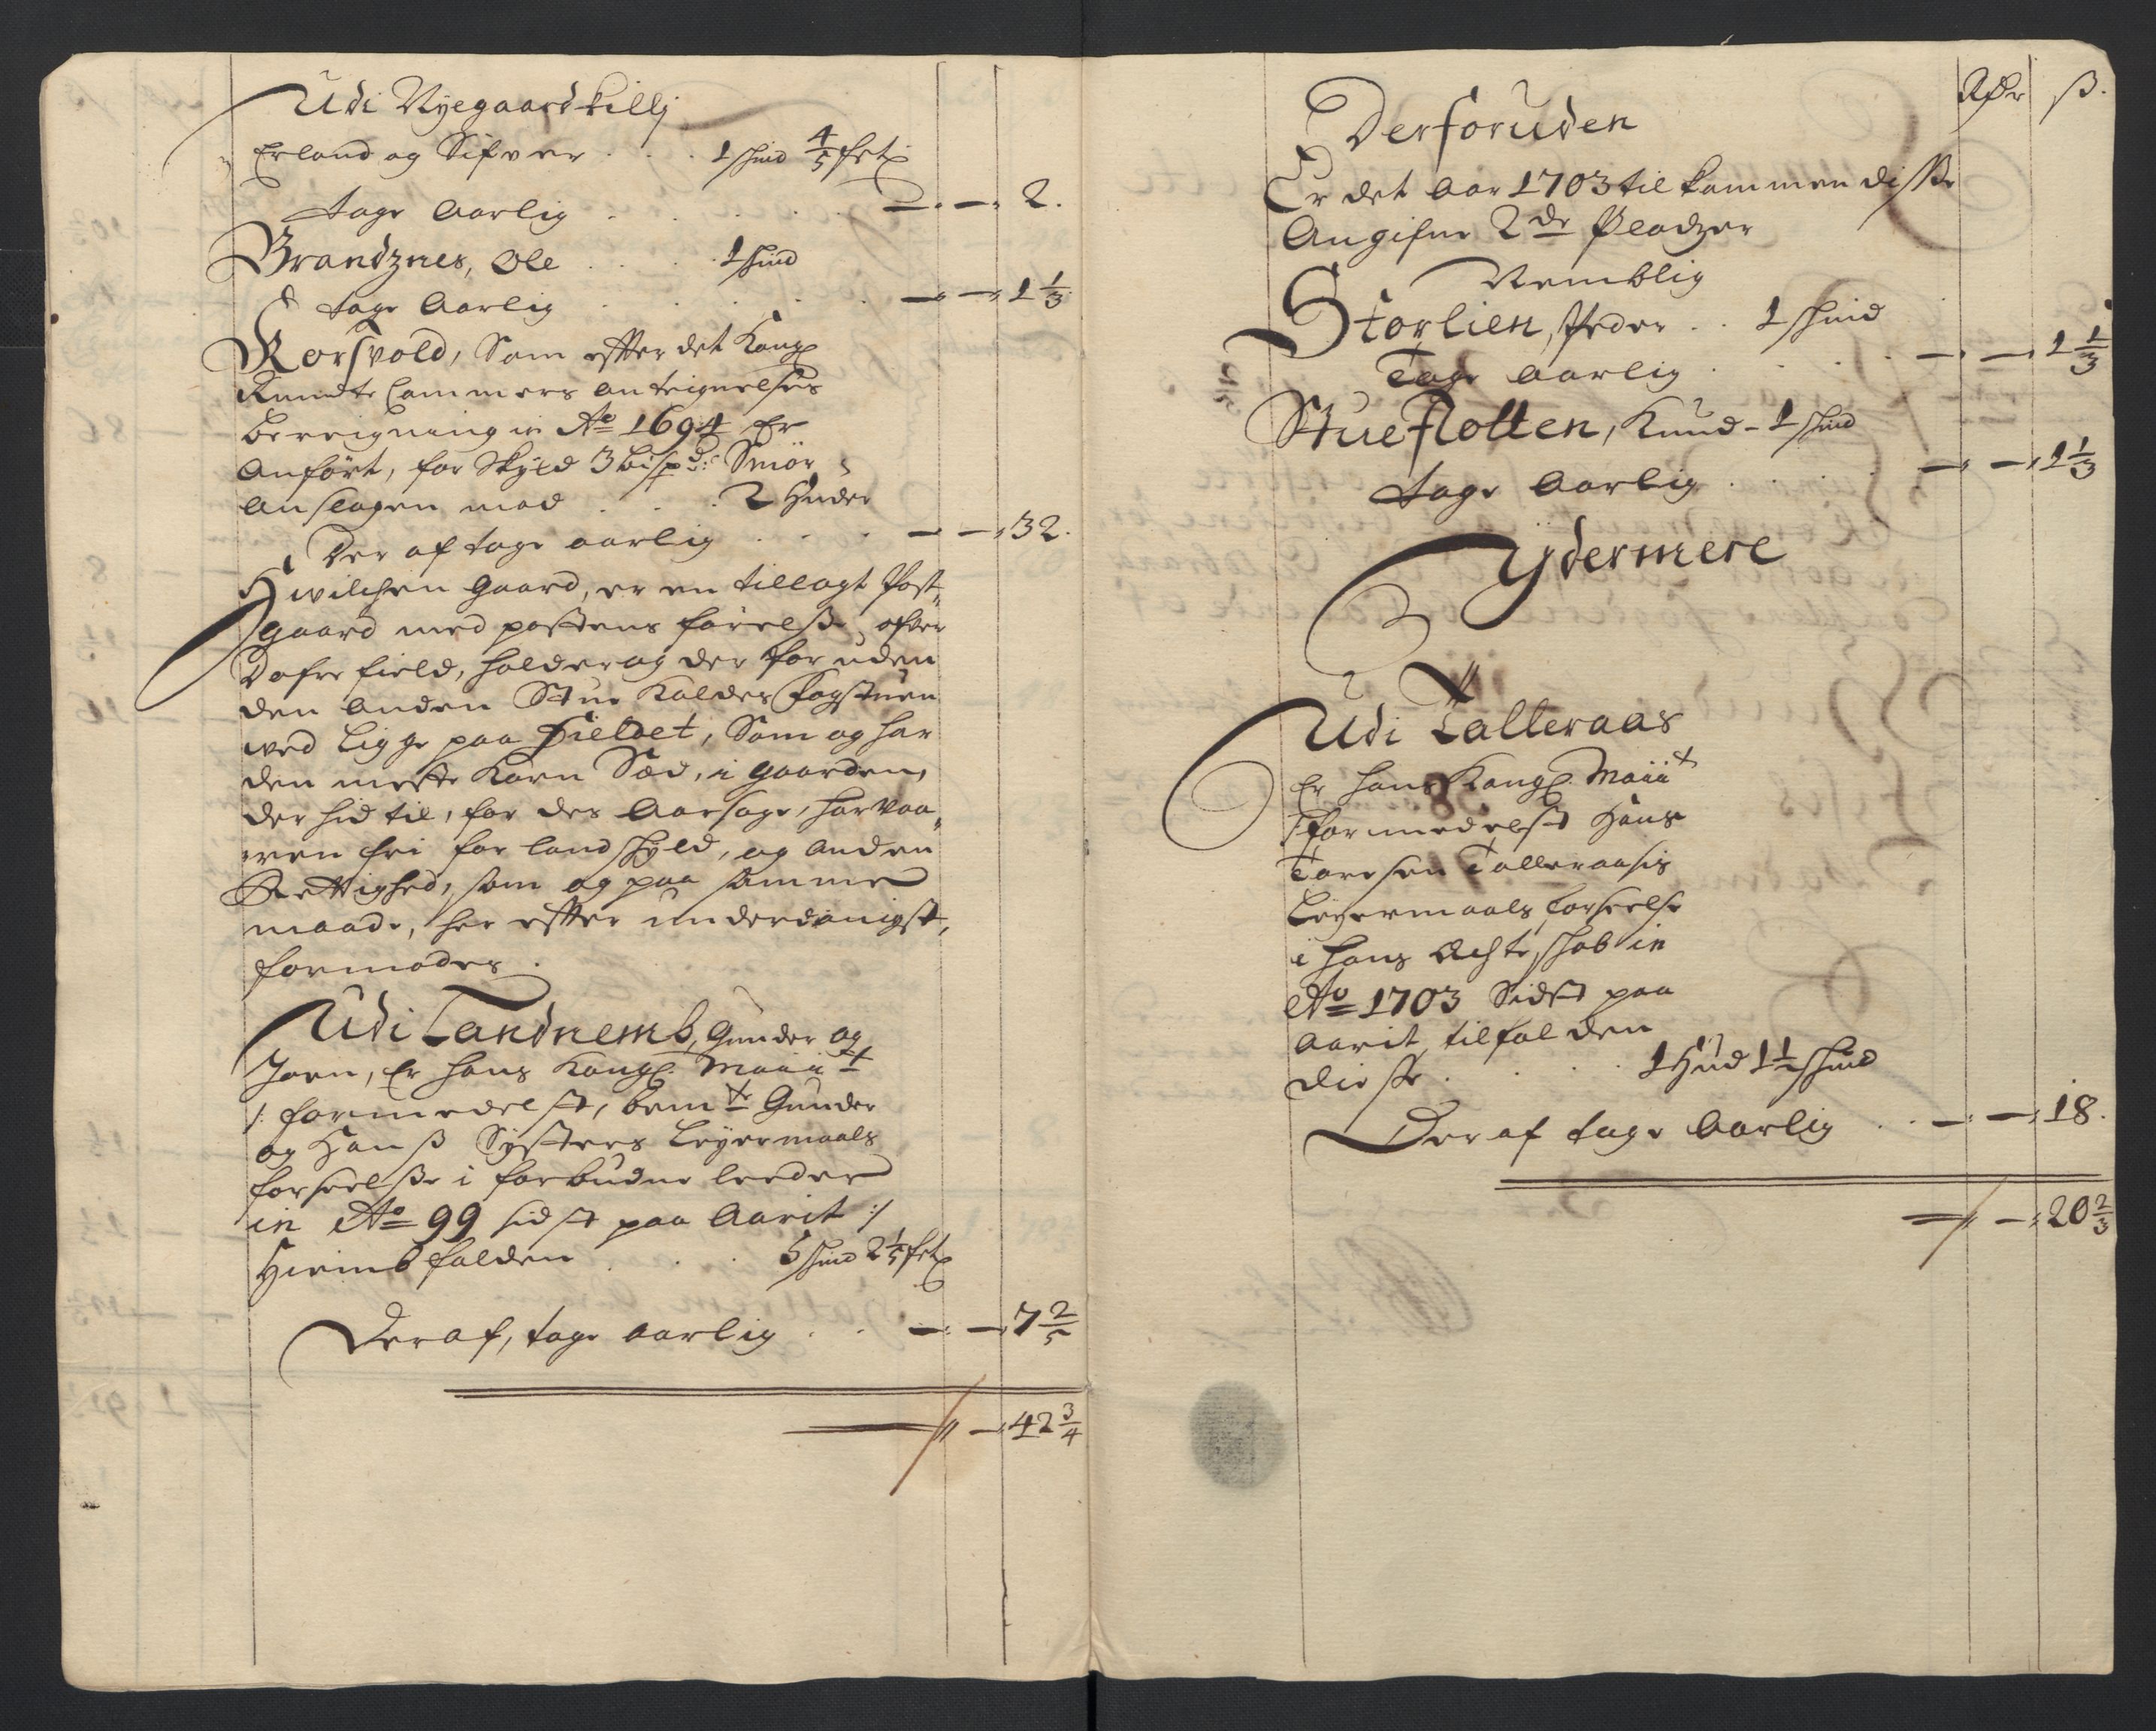 Udi Nyegaard killj
Erland og Sifver . . . 1 skind 4/5 sk
tage Aarlig . . . . . — — 2.
Brandznes, Ole . . . 1 skind
tage Aarlig . . . . . — — 1 1/3
Korsvold, Som effter det Kongl
Rendte Cammers Anteignelses
bereigning in Ao 1694 Er
Anført, for Skyld 3 bispd: Smør
Anslagen med . . . 2 Huder
Der af tage aarlig . . . — — 32.
Hvilchen Gaard, er en tillagt Post-
gaard med postens førelsse ofver
Dofre field, holder og der foruden
den Anden Stue Kaldes Fogstuen
ved Ligge paa Fieldet, Som og har
den meste Korn Sæd, i Gaarden,
der hid til, for des Aarsage, har vaa-
ren fri for landskyld, og Anden
Rettighed, som og paa samme
maade, her effter underdanigst,
formodes.
Udi Tandnemb, Gunder og
Joen, Er Hans Kongl. Maiit
/: formedelst, bemte Gunder
og Hans Systers Leyermaals
forseelsse i forbudne leeder
in Ao 99 sidst paa Aarit :/
Hiembfalden . . . 5 skind 2 1/5 sk
Der af, tage aarlig . . — — 7 2/5
— 42 3/4
Rdr ß.
Derforuden
Er det Aar 1703 til kommen disse
Angifne 2de Pladzer
Nemblig
Storlien, Peder . . 1 skind
Tage Aarlig . . . — — 1 1/3
Stueflotten, Knud - 1 skind
tage Aarlig . . . — — 1 1/3
Ydermere
Udi Talleraas
Er Hans Kongl. Maiit
/: formedelst Hans
Toresen Talleraasis
Leyermaals forseelse
i Hans Echteskab in
Ao 1703 Sidst paa
Aarit, tilfalden
disse . . . . 1 Hud 1 1/2 skind
Der af tage Aarlig . . — — 18.
— 20 2/3